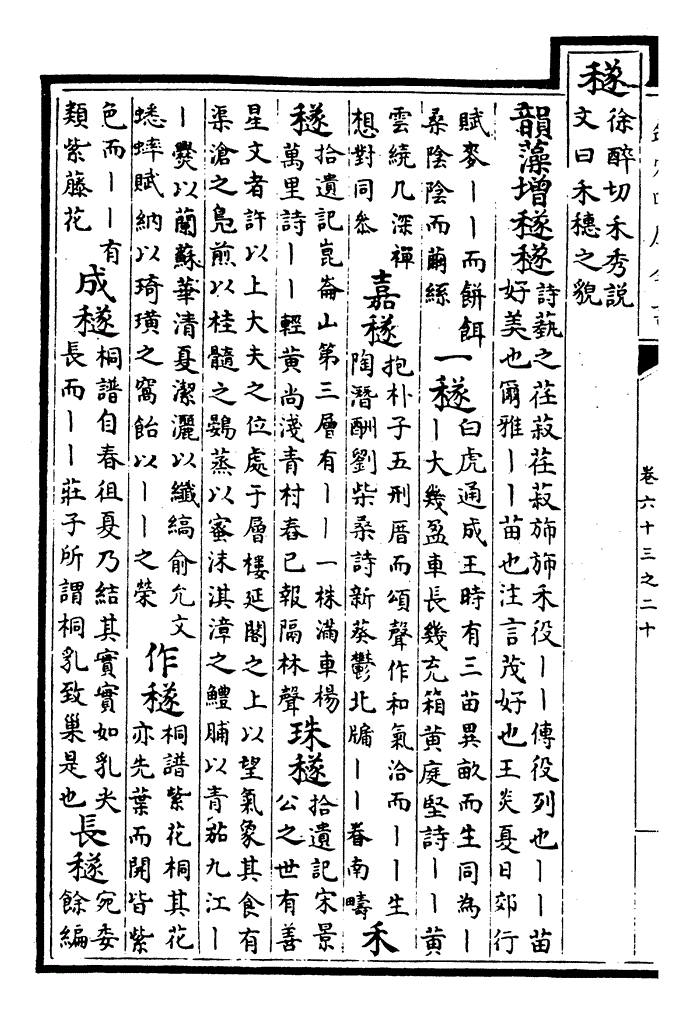 穟
徐醉切禾秀說
文曰禾穗之貌
韻藻增穟穟
詩蓺之荏菽荏菽斾斾禾役丨丨傳役列也丨丨苗
好美也爾雅丨丨苗也注言茂好也王炎夏日郊行
賦麥丨丨而餅餌
桑陰陰而繭絲
一穟
白虎通成王時有三苗異畝而生同為丨
丨大幾盈車長幾充箱黃庭堅詩丨丨黃
雲繞几深禪
想對同叅
嘉穟
抱朴子五刑厝而頌聲作和氣洽而丨丨生
陶潛酬劉柴桑詩新葵鬱北牖丨丨眷南疇
禾
穟
拾遺記崑崙山第三層有丨丨一株滿車楊
萬里詩丨丨輕黃尚淺青村舂已報隔林聲
珠穟
拾遺記宋景
公之世有善
星文者許以上大夫之位處于層樓延閣之上以望氣象其食有
渠滄之鳧煎以桂髓之鷃蒸以蜜沫淇漳之鱧脯以青茄九江丨
丨爨以蘭蘇華清夏潔灑以纖縞俞允文
蟋蟀賦納以琦璜之窩飴以丨丨之榮
作穟
桐譜紫花桐其花
亦先葉而開皆紫
色而丨丨有
類紫藤花
成穟
桐譜自春徂夏乃結其實實如乳尖
長而丨丨莊子所謂桐乳致巢是也
長穟
宛委
餘編
卷六十三之二十